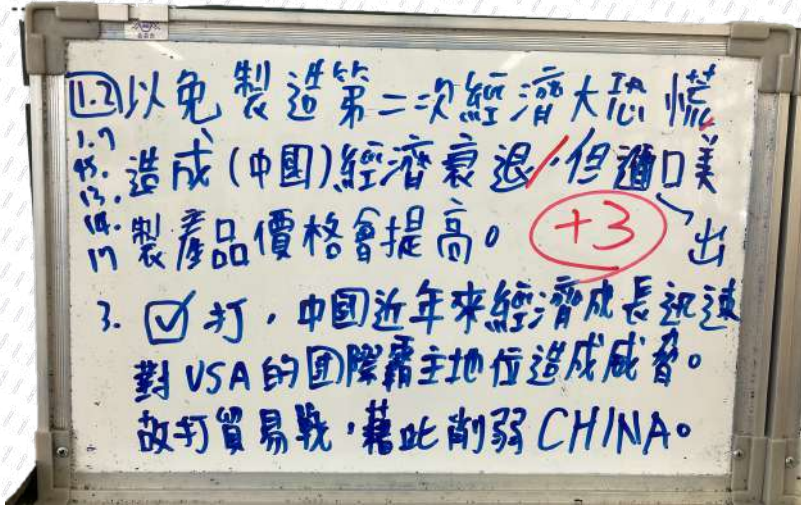 1.2 以免製造第二次經濟大恐慌
1.7 造成(中國)經濟衰退，但進口美
45. 13. 14. 製產品價格會提高。 +3 出
17
3. ☑打，中國近年來經濟成長迅速
對USA的国際霸主地位造成威脅。
故打貿易戰，藉此削弱CHINA。